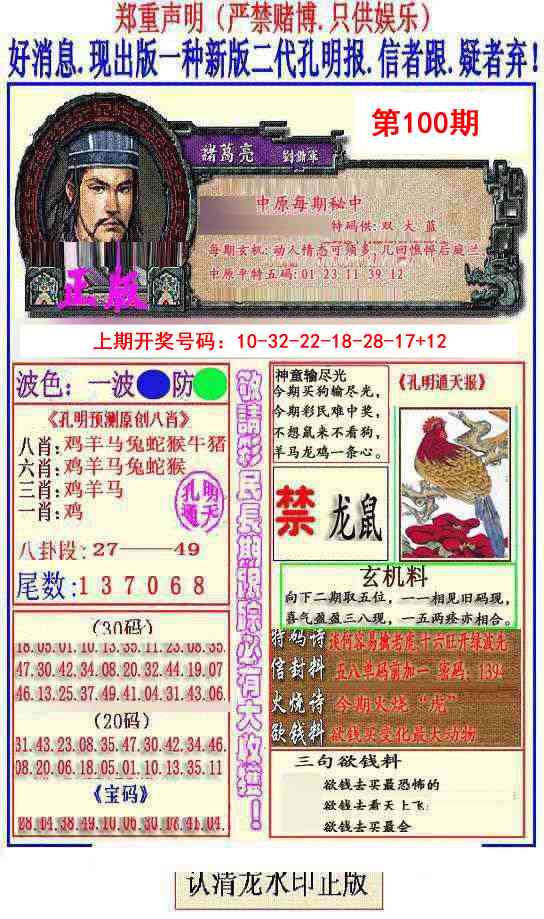 郑重声明（严禁赌博.只供娱乐）
好消息.现出版一种新版二代孔明报.信者跟.疑者弃!
第100期
諸葛亮 劉備軍
中原每期秘中
特码供:双 大 蓝
每期玄机:动人情态可须多,几回憔悴后庭兰。
中原平特五码:01 23 11 39 12
正版
上期开奖号码: 10-32-22-18-28-17+12
波色: 一波 防
《孔明预测原创八肖》
八肖:鸡羊马兔蛇猴牛猪
六肖:鸡羊马兔蛇猴
三肖:鸡羊马
一肖:鸡
孔明
通天
八卦段: 27——49
尾数: 1 3 7 0 6 8
(30码)
18.05.01.10.13.35.11.23.08.35.
47.30.42.34.08.20.32.44.19.07
46.13.25.37.49.41.04.31.43.06.
(20码)
31.43.23.08.35.47.30.42.34.46.
08.20.06.18.05.01.10.13.35.11
《宝码》
敬請彩民長期跟踪必有大收獲!
神童输尽光
今期买狗输尽光，
今期彩民难中奖，
不想鼠来不看狗，
羊马龙鸡一条心。
《孔明通天报》
禁 龙鼠
玄机料
向下二期取五位，一一相见旧码现，
喜气盈盈三八现，一五两经亦相合。
特码诗 谈何容易擒老虎十六旺开绿波先
信封料 五八单码前加一 密码: 1394
火烧诗 今期火烧“虎”
欲钱料 欲钱买变化最大动物
三句欲钱料
欲钱去买最恐怖的
欲钱去看天上飞
欲钱去买最会
认清龙水印正版